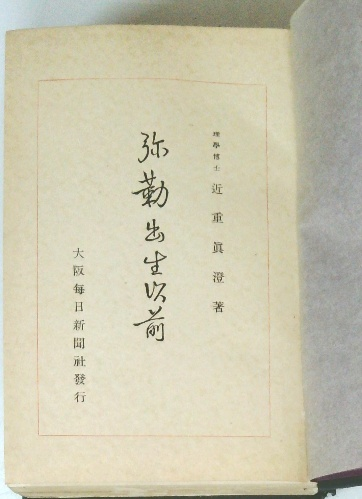 理學博士 近重眞澄著
弥勒出生以前
大阪每日新聞社發行